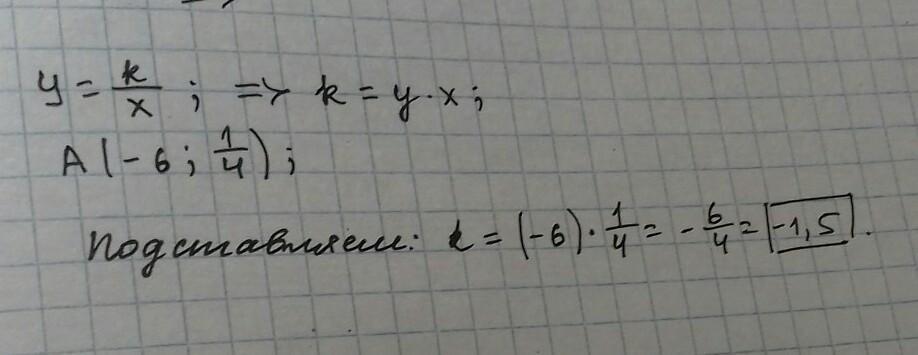 y = k/x ; => k = y·x;
A(-6; 1/4);
Подставляем: k = (-6)·1/4 = -6/4 = -1,5.